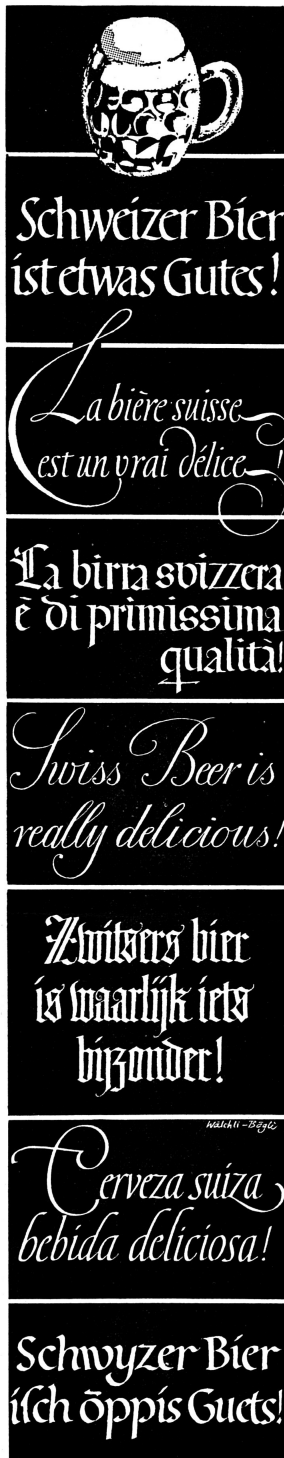 Schweizer Bier
ist etwas Gutes!
La bière suisse
est un vrai délice!
La birra svizzera
è di primissima
qualità!
Swiss Beer is
really delicious!
Zwitsers bier
is waarlijk iets
bijzonder!
Wälchli-Bögli
Cerveza suiza
bebida deliciosa!
Schwyzer Bier
iſch öppis Guets!